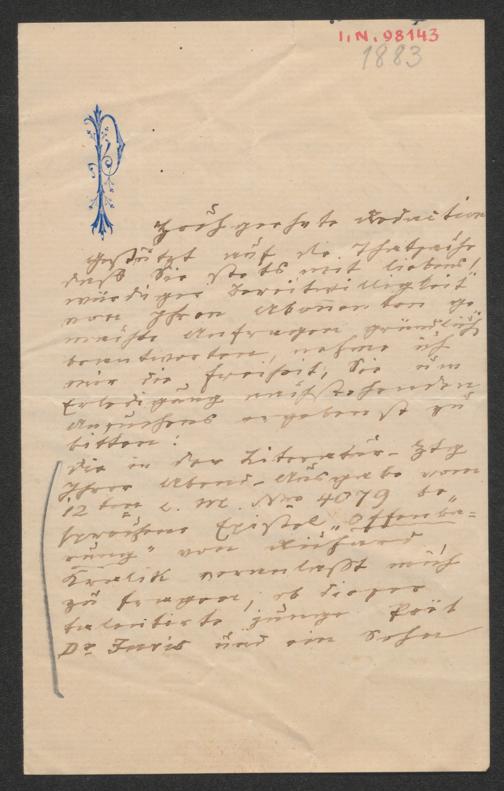 I.N. 98143
1883
P
Hochgeehrte Redaction
Gestützt auf die Thatsache
daß Sie stets mit liebens,
würdiger Bereitwilligkeit
von Ihren Abonnenten ge
machte Anfragen gründlich
beantworten, nehme ich
mir die Freiheit, Sie um
Erledigung nachstehenden
Ansuchens ergebenst zu
bitten:
Die in der Literatur-Ztg
Ihrer Abend-Ausgabe vom
12ten d. M. Nro 4079 be„
sprochene Epistel „Offenba=
rung" von Richard
Kralik veranlaßt mich
zu fragen, ob dieser
talentirte junge Poët
Dr Juris und ein Sohn